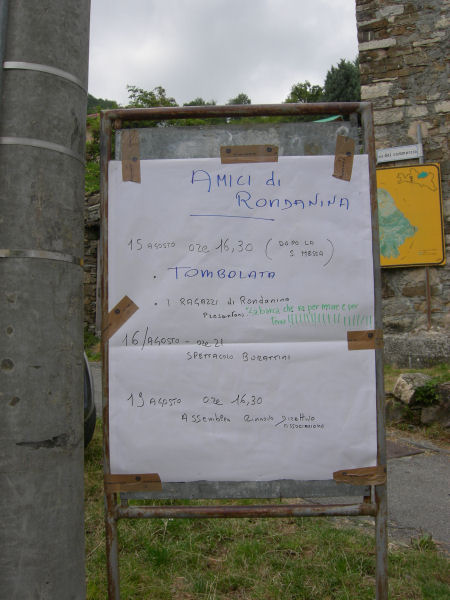 AMICI di
RONDANINA
15 AGOSTO ORE 16,30 ( DOPO LA
S. MESSA )
• TOMBOLATA
• I RAGAZZI di RONDANINA
PRESENTANO: "La barca che va per mare e per
terra"!!!!!!!!!!!!!!!
16/AGOSTO - ORE 21
SPETTACOLO BURATTINI
19 AGOSTO ORE 16,30
ASSEMBLEA RINNOVO DIRETTIVO
ASSOCIAZIONE